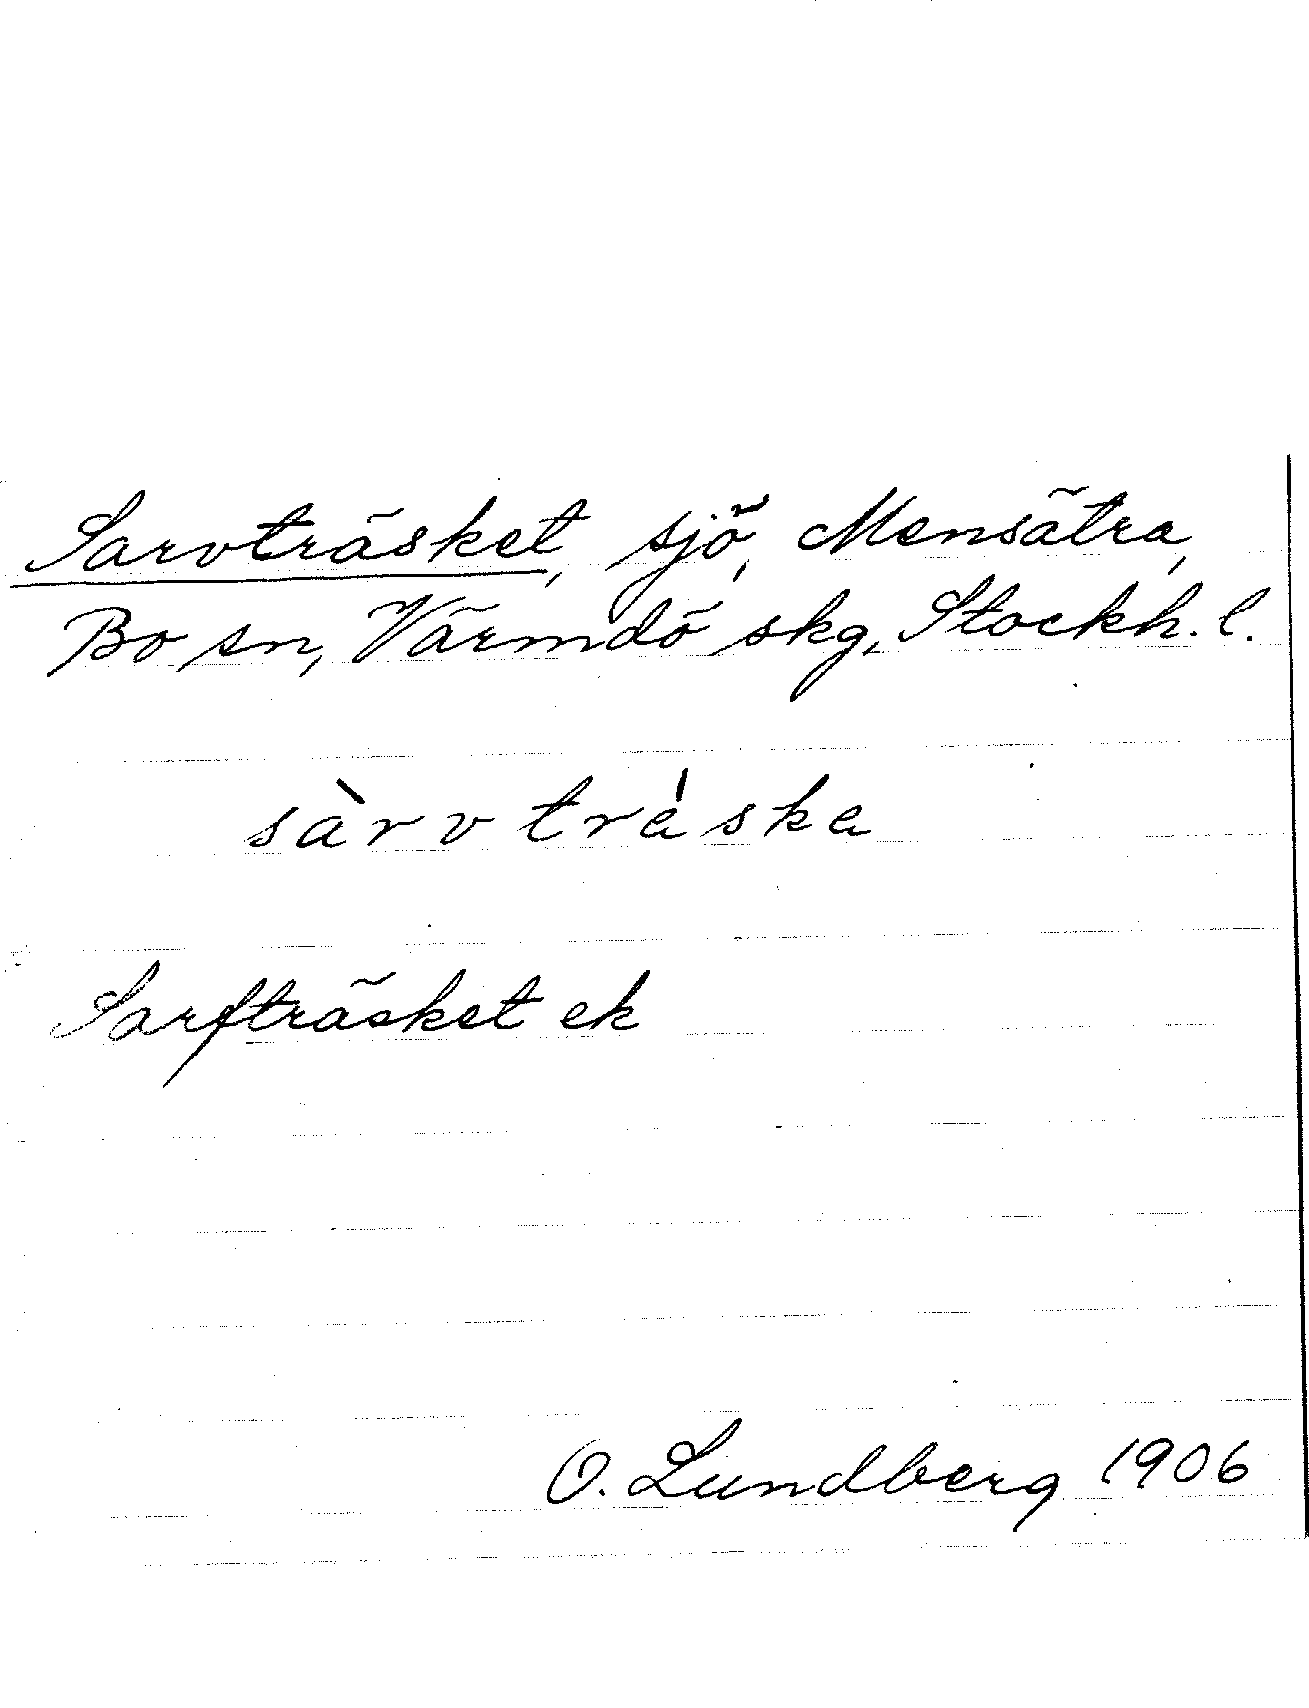 Sarvträsket, sjö, Mensätra,
Bo sn, Värmdö skg, Stockh. l.
sàrvtráska
Sarfträsket ek
O. Lundberg 1906